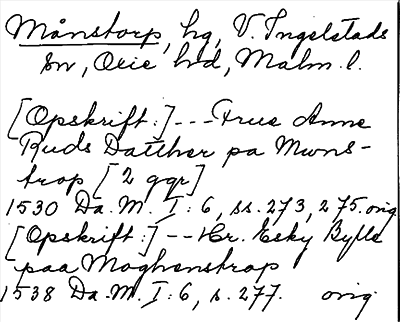 Månstorp, hg, V. Ingelstads
sn, Oxie hd, Malm. l.
[Opskrift:] --- Frue Anne
Ruds Datther pa Mwns-
trop [2 ggr]
1530 Da. M. I: 6, ss. 273, 275. orig.
[Opskrift:] -- Hr. Esky Bylle
paa Moghenstrop
1538 Da. M. I: 6, s. 277. orig.